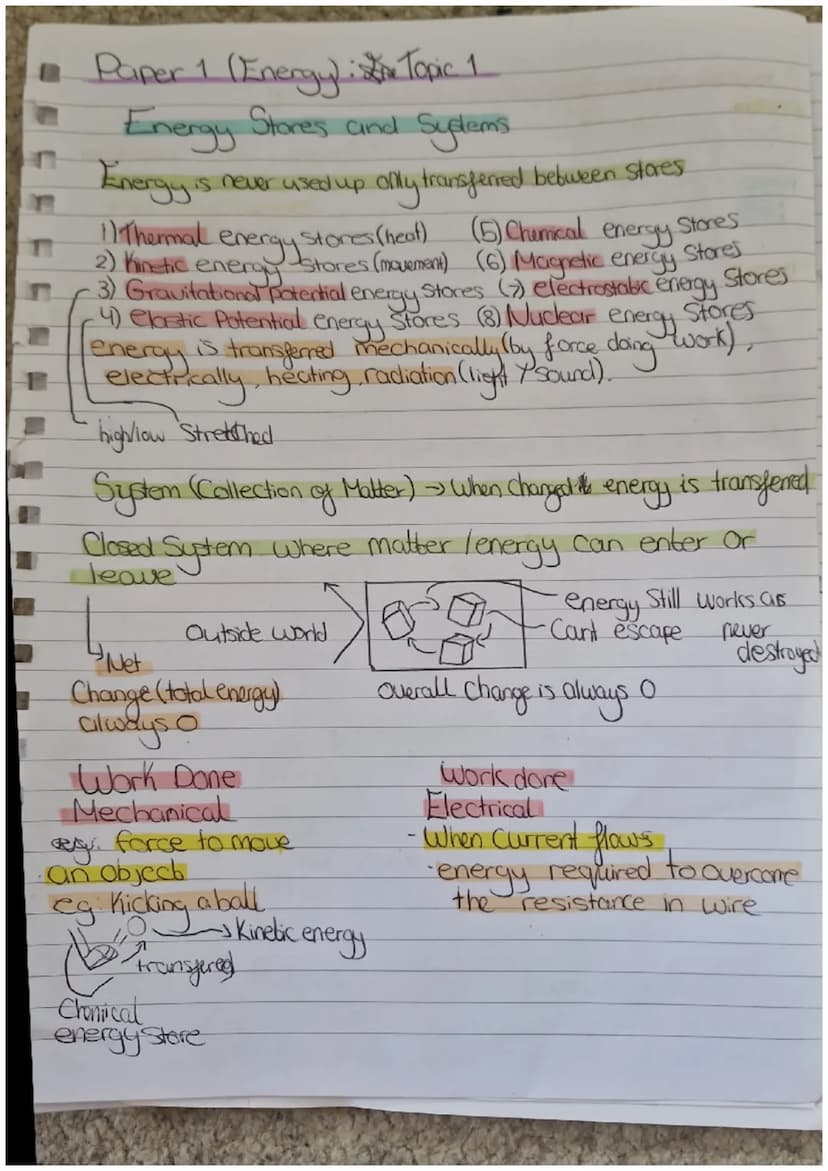 Paper 1 (Energy): Topic 1
Energy Stores and Systems
Energy is never used up only transferred between stores
1) Thermal energy stores (heat) (5) Chemical energy stores
2) Kinetic energy stores (movement) (6) Magnetic energy stores
3) Gravitational potential energy stores (7) electrostatic energy stores
4) elastic potential energy stores (8) Nuclear energy stores
energy is transferred mechanically (by force doing work),
electrically, heating, radiation (light / sound).
high/low Stretched
System (Collection of Matter) → When changed energy is transferred
Closed System where matter / energy can enter or
leave
Outside world
energy Still works as
Cant escape never
destroyed
Net
Change (total energy)
always 0
overall Change is always 0
Work Done
Mechanical
eg: force to move
an object
eg: Kicking a ball
→ Kinetic energy
transfered
Chemical
energy store
Work done
Electrical
- When current flows
- energy required to overcome
the resistance in wire